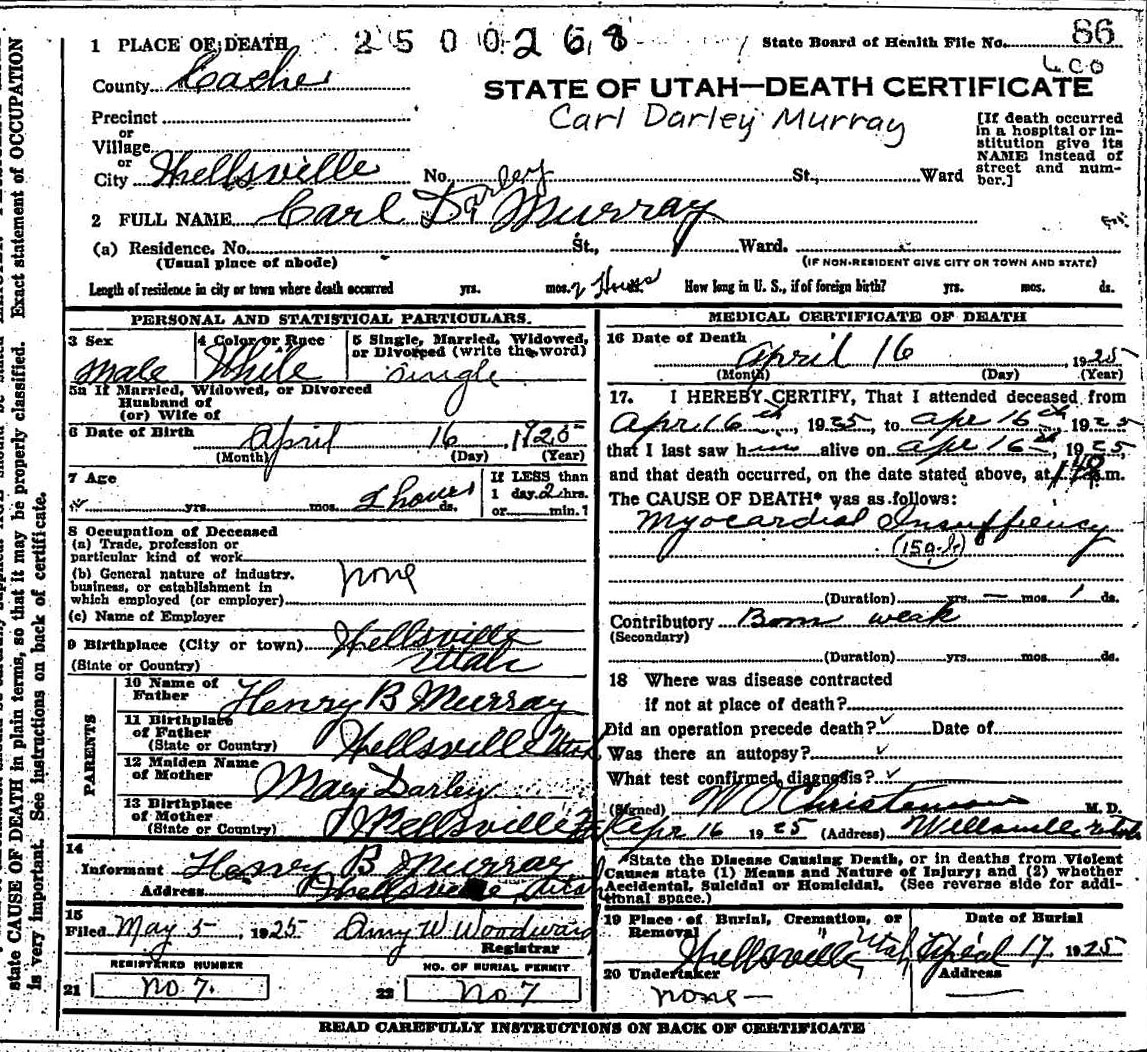 1 PLACE OF DEATH 2500268 State Board of Health File No. 86
County Cache
STATE OF UTAH—DEATH CERTIFICATE
Carl Darley Murray
Precinct
or
Village
or
City Wellsville No. St., Ward
[If death occurred
in a hospital or in-
stitution give its
NAME instead of
street and num-
ber.]
2 FULL NAME Carl Darley Murray
(a) Residence. No. St., Ward.
(Usual place of abode) (IF NON-RESIDENT GIVE CITY OR TOWN AND STATE)
Length of residence in city or town where death occurred yrs. mos. 2 Hours How long in U. S., if of foreign birth? yrs. mos. ds.
PERSONAL AND STATISTICAL PARTICULARS.
3 Sex
Male
4 Color or Race
White
5 Single, Married, Widowed,
or Divorced (write the word)
single
5a If Married, Widowed, or Divorced
Husband of
(or) Wife of
6 Date of Birth April 16 1925
(Month) (Day) (Year)
7 Age
yrs. mos. 2 hours ds.
If LESS than
1 day 2 hrs.
or min.?
8 Occupation of Deceased
(a) Trade, profession or
particular kind of work
(b) General nature of industry,
business, or establishment in
which employed (or employer)
none
(c) Name of Employer
9 Birthplace (City or town) Wellsville
(State or Country) Utah
PARENTS
10 Name of
Father Henry B Murray
11 Birthplace
of Father
(State or Country) Wellsville Utah
12 Maiden Name
of Mother Mary Darley
13 Birthplace
of Mother
(State or Country) Wellsville
14
Informant Henry B Murray
Address Wellsville, Utah
15
Filed May 5, 1925 Amy W Woodward
Registrar
REGISTERED NUMBER
21 No 7.
NO. OF BURIAL PERMIT
22 No 7
MEDICAL CERTIFICATE OF DEATH
16 Date of Death
April 16 1925
(Month) (Day) (Year)
17. I HEREBY CERTIFY, That I attended deceased from
Apr 16th, 1925, to Apr 16th, 1925
that I last saw him alive on Apr 16th, 1925,
and that death occurred, on the date stated above, at m.
The CAUSE OF DEATH* was as follows:
Myocardial Insuffiency
(Duration) yrs. — mos. 1 ds.
Contributory Born weak
(Secondary)
(Duration) yrs. mos. ds.
18 Where was disease contracted
if not at place of death?
Did an operation precede death? Date of
Was there an autopsy?
What test confirmed diagnosis?
(Signed) W O Christenson M. D.
Apr 16 1925 (Address) Wellsville Utah
*State the Disease Causing Death, or in deaths from Violent
Causes state (1) Means and Nature of Injury; and (2) whether
Accidental, Suicidal or Homicidal. (See reverse side for addi-
tional space.)
19 Place of Burial, Cremation, or
Removal
Wellsville, Utah
Date of Burial
April 17 1925
20 Undertaker
none —
Address
READ CAREFULLY INSTRUCTIONS ON BACK OF CERTIFICATE
state CAUSE OF DEATH in plain terms, so that it may be properly classified. Exact statement of OCCUPATION
is very important. See instructions on back of certificate.